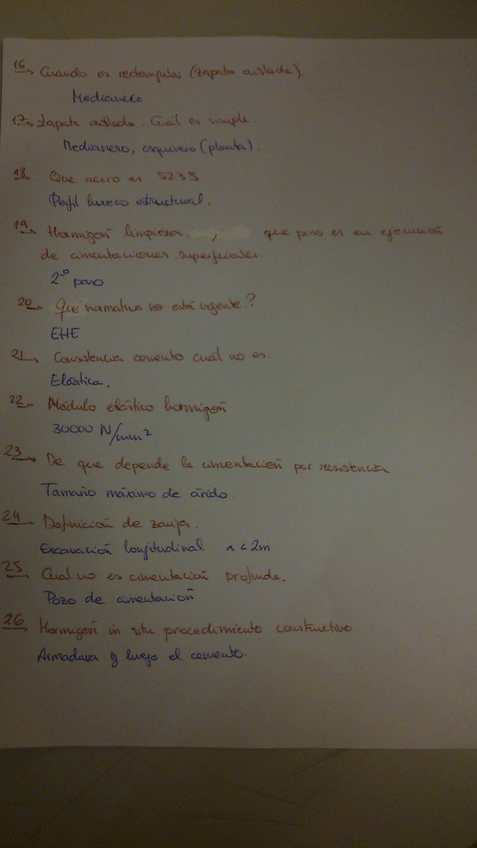 16 Cuando es rectangular (zapata aislada).
Medianero
17 Zapata aislada. Cuál es simple.
Medianero, esquinero (planta).
18 Que acero es S235
Perfil hueco estructural.
19 Hormigón limpieza , que paso es en ejecución
de cimentaciones superficiales.
2º paso
20 Qué normativa no está vigente?
EHE
21 Consistencia cemento cuál no es
Elástica.
22 Módulo elástico hormigón
30000 N/mm²
23 De que depende la cimentación por resistencia.
Tamaño máximo de árido.
24 Definición de zanja.
Excavación longitudinal < 2m
25 Cual no es cimentación profunda.
Pozo de cimentación
26 Hormigón in situ procedimiento constructivo
Armadura y luego el cemento.